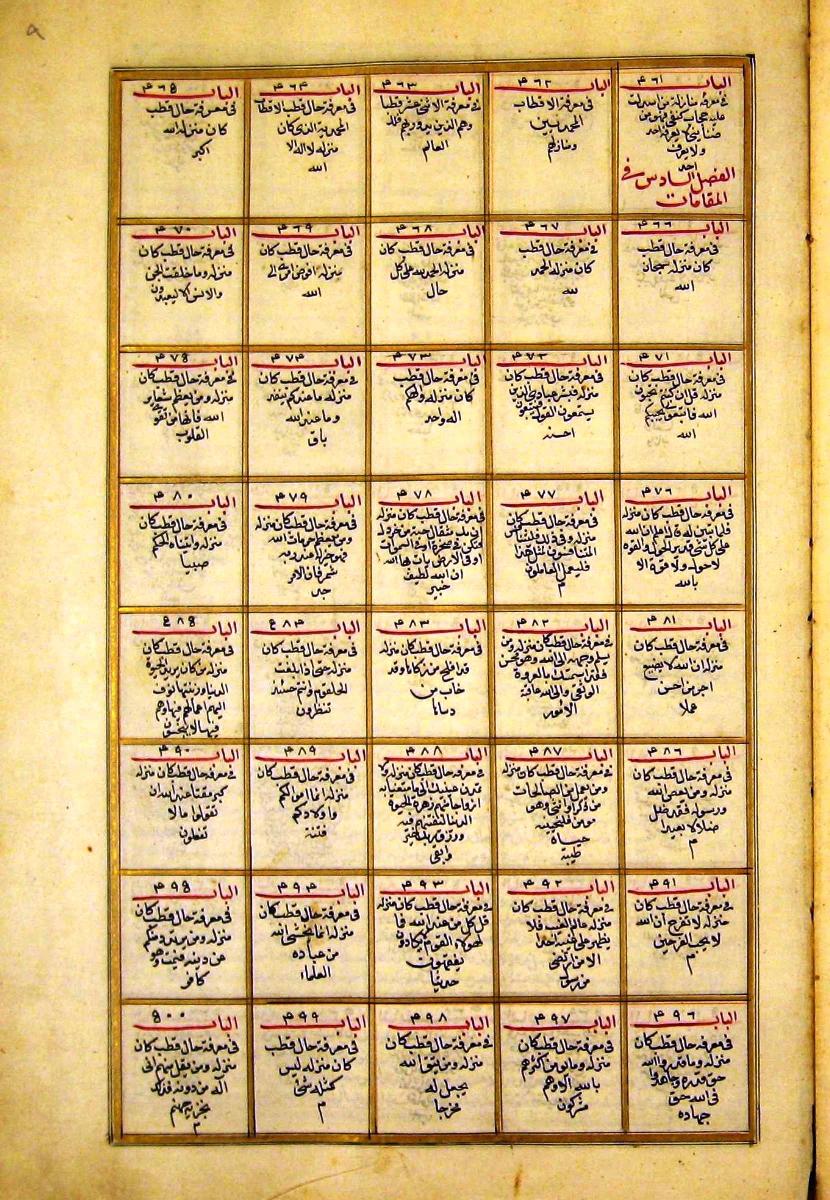 ٩
الباب ٤٦١
في معرفة منازلة من اسدلت
عليه حجاب كنفي فهو من
ضنايني لا يعرفه احد
ولا يعرف
احد
الفصل السادس في
المقامات
الباب ٤٦٢
في معرفة الاقطاب
المحمديين
ومنازلهم
الباب ٤٦٣
في معرفة الاثنى عشر قطبا
وهم الذين يدور بهم فلك
العالم
الباب ٤٦٤
في معرفة حال قطب الاقطاب
المحمدية الذي كان
منزله لا اله الا
الله
الباب ٤٦٥
في معرفة حال قطب
كان منزله الله
اكبر
الباب ٤٦٦
في معرفة حال قطب
كان منزله سبحان
الله
الباب ٤٦٧
في معرفة حال قطب
كان منزله الحمد
لله
الباب ٤٦٨
في معرفة حال قطب كان
منزله الحمد لله على كل
حال
الباب ٤٦٩
في معرفة حال قطب كان
منزله افوض امري الى
الله
الباب ٤٧٠
في معرفة حال قطب كان
منزله وما خلقت الجن
والانس الا ليعبدون
الباب ٤٧١
في معرفة حال قطب كان
منزله قل ان كنتم تحبون
الله فاتبعوني يحببكم
الله
الباب ٤٧٢
في معرفة حال قطب كان
منزله فبشر عبادي الذين
يستمعون القول فيتبعون
احسنه
الباب ٤٧٣
في معرفة حال قطب
كان منزله والهكم
اله واحد
الباب ٤٧٤
في معرفة حال قطب كان
منزله ما عندكم ينفد
وما عند الله
باق
الباب ٤٧٥
في معرفة حال قطب كان
منزله ومن يعظم شعاير
الله فانها من تقوى
القلوب
الباب ٤٧٦
في معرفة حال قطب كان منزله
فلما تبين له قال اعلم ان الله
على كل شئ قدير الحول والقوة
لا حول ولا قوة الا
بالله
الباب ٤٧٧
في معرفة حال قطب كان
منزله وفي ذلك فليتنافس
المتنافسون لمثل هذا
فليعمل العاملون
م
الباب ٤٧٨
في معرفة حال قطب كان منزله
ان تك مثقال حبة من خردل
فتكن في صخرة او في السموات
او في الارض يات بها الله
ان الله لطيف
خبير
الباب ٤٧٩
في معرفة حال قطب كان منزله
ومن يعظم حرمات الله
فهو خير له عند ربه
الباب ٤٨٠
في معرفة حال قطب كان
منزله واتيناه الحكم
صبيا
الباب ٤٨١
في معرفة حال قطب كان
منزله ان الله لا يضيع
اجر من احسن
عملا
الباب ٤٨٢
في معرفة حال قطب كان منزله ومن
يسلم وجهه الى الله وهو محسن
فقد استمسك بالعروة
الوثقى والى الله عاقبة
الامور
الباب ٤٨٣
في معرفة حال قطب كان منزله
قد افلح من زكاها وقد
خاب من
دساها
الباب ٤٨٤
في معرفة حال قطب كان
منزله حتى اذا بلغت
الحلقوم وانتم حينئذ
تنظرون
الباب ٤٨٥
في معرفة حال قطب كان
منزله من كان يريد الحيوة
الدنيا وزينتها نوف
اليهم اعمالهم فيها وهم
فيها لا يبخسون
الباب ٤٨٦
في معرفة حال قطب كان
منزله ومن يعصى الله
ورسوله فقد ضل
ضلالا بعيدا
م
الباب ٤٨٧
في معرفة حال قطب كان منزله
ومن يعمل من الصالحات
من ذكر او انثى وهو
مومن فلنحيينه
حياة
طيبة
الباب ٤٨٨
في معرفة حال قطب كان منزله ولا
تمدن عينيك الى ما متعنا به
ازواجا منهم زهرة الحيوة
الدنيا لنفتنهم فيه
ورزق ربك خير
وابقى
الباب ٤٨٩
في معرفة حال قطب كان
منزله انما اموالكم
واولادكم
فتنة
الباب ٤٩٠
في معرفة حال قطب كان منزله
كبر مقتا عند الله ان
تقولوا ما لا
تفعلون
الباب ٤٩١
في معرفة حال قطب كان
منزله لا تفرح ان الله
لا يحب الفرحين
م
الباب ٤٩٢
في معرفة حال قطب كان
منزله عالم الغيب فلا
يظهر على غيبه احدا
الا من ارتضى
من رسول
الباب ٤٩٣
في معرفة حال قطب كان منزله
قل كل من عند الله فما
لهولاء القوم لا يكادون
يفقهون
حديثا
الباب ٤٩٤
في معرفة حال قطب كان
منزله انما يخشى الله
من عباده
العلماء
الباب ٤٩٥
في معرفة حال قطب كان
منزله ومن يرتدد منكم
عن دينه فيمت وهو
كافر
الباب ٤٩٦
في معرفة حال قطب كان
منزله وما قدروا الله
حق قدره وجاهدوا
في الله حق
جهاده
الباب ٤٩٧
في معرفة حال قطب كان
منزله وما يومن اكثرهم
بالله الا وهم
مشركون
الباب ٤٩٨
في معرفة حال قطب كان
منزله ومن يتق الله
يجعل له
مخرجا
الباب ٤٩٩
في معرفة حال قطب
كان منزله ليس
كمثله شئ
م
الباب ٥٠٠
في معرفة حال قطب كان
منزله ومن يقل منهم اني
اله من دونه فذلك
نجزيه جهنم
م